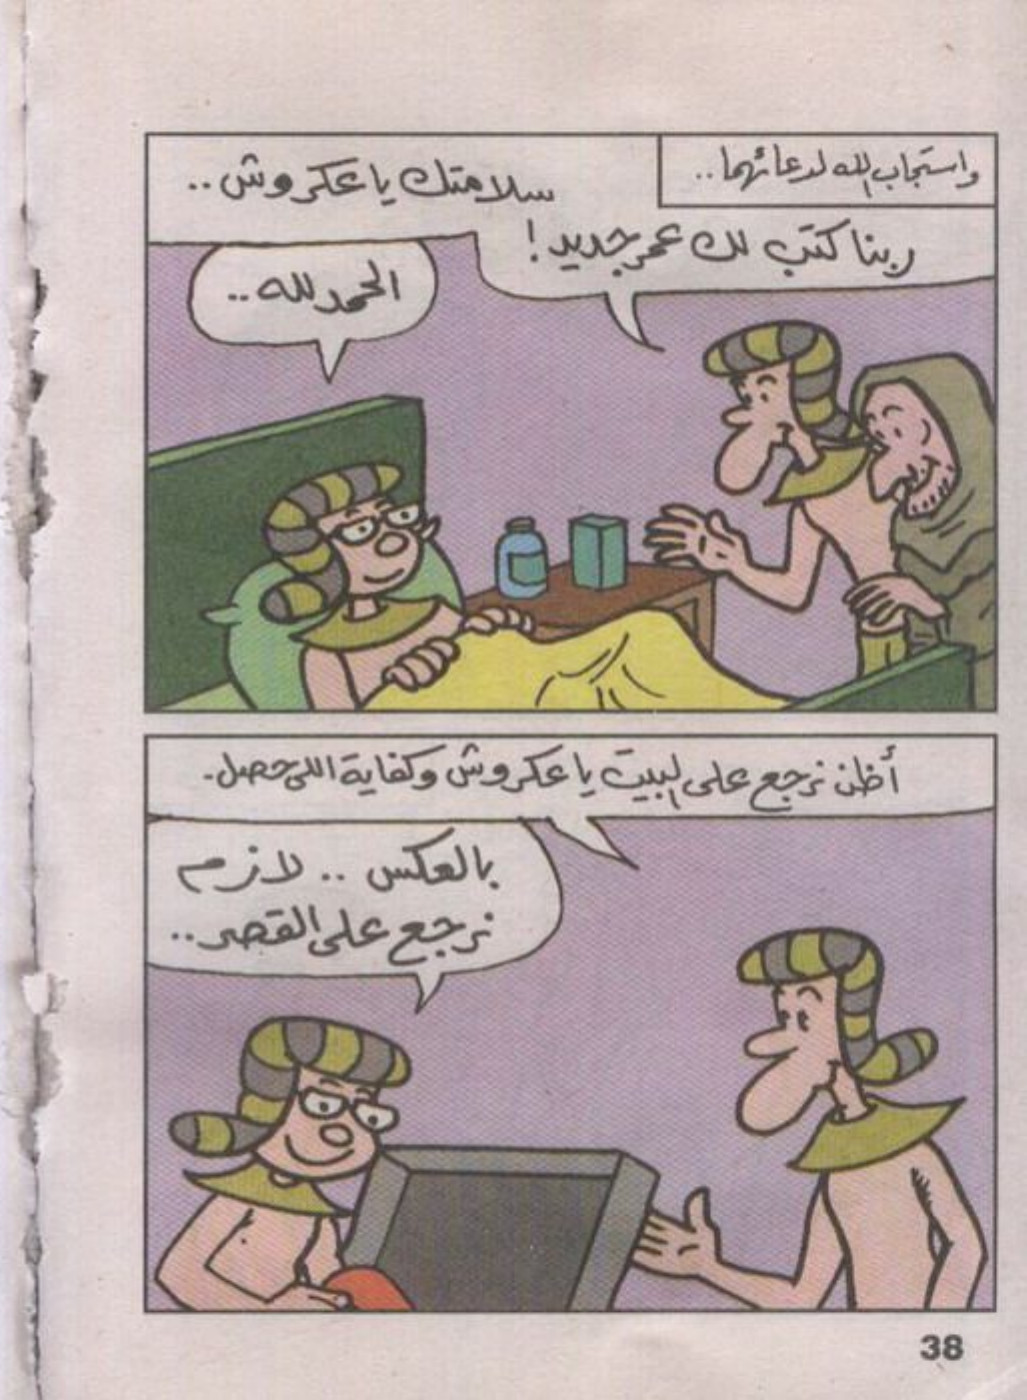 واستجاب الله لدعائهما..
سلامتك يا عكروش..
ربنا كتب لك عمر جديد!
الحمد لله..
أظن نرجع على البيت يا عكروش وكفاية اللى حصل.
بالعكس.. لازم
نرجع على القصر..
38